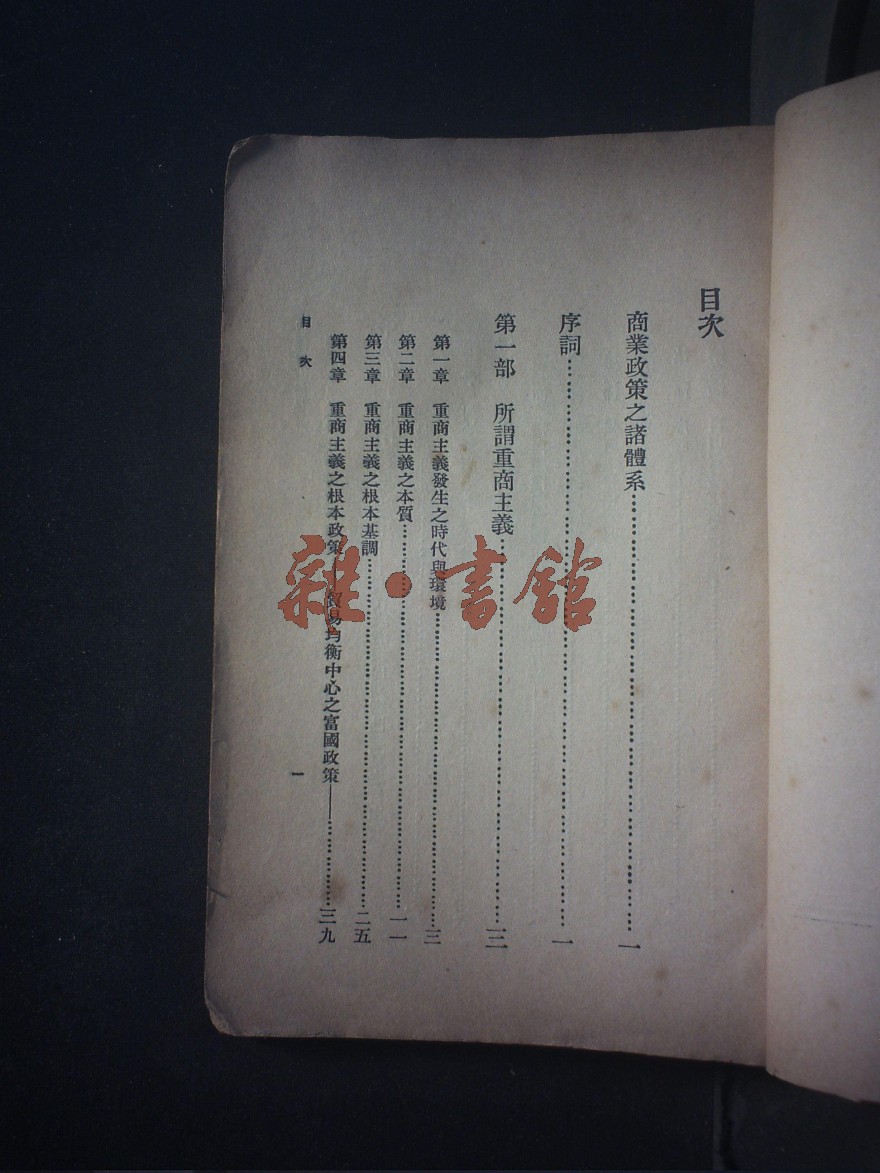 目次
商業政策之諸體系……………一
序詞……………一
第一部 所謂重商主義……………三
第一章 重商主義發生之時代與環境……………三
第二章 重商主義之本質……………一一
第三章 重商主義之根本基調……………二五
第四章 重商主義之根本政策——貿易均衡中心之富國政策——……………三九
目次
一
雜·書館